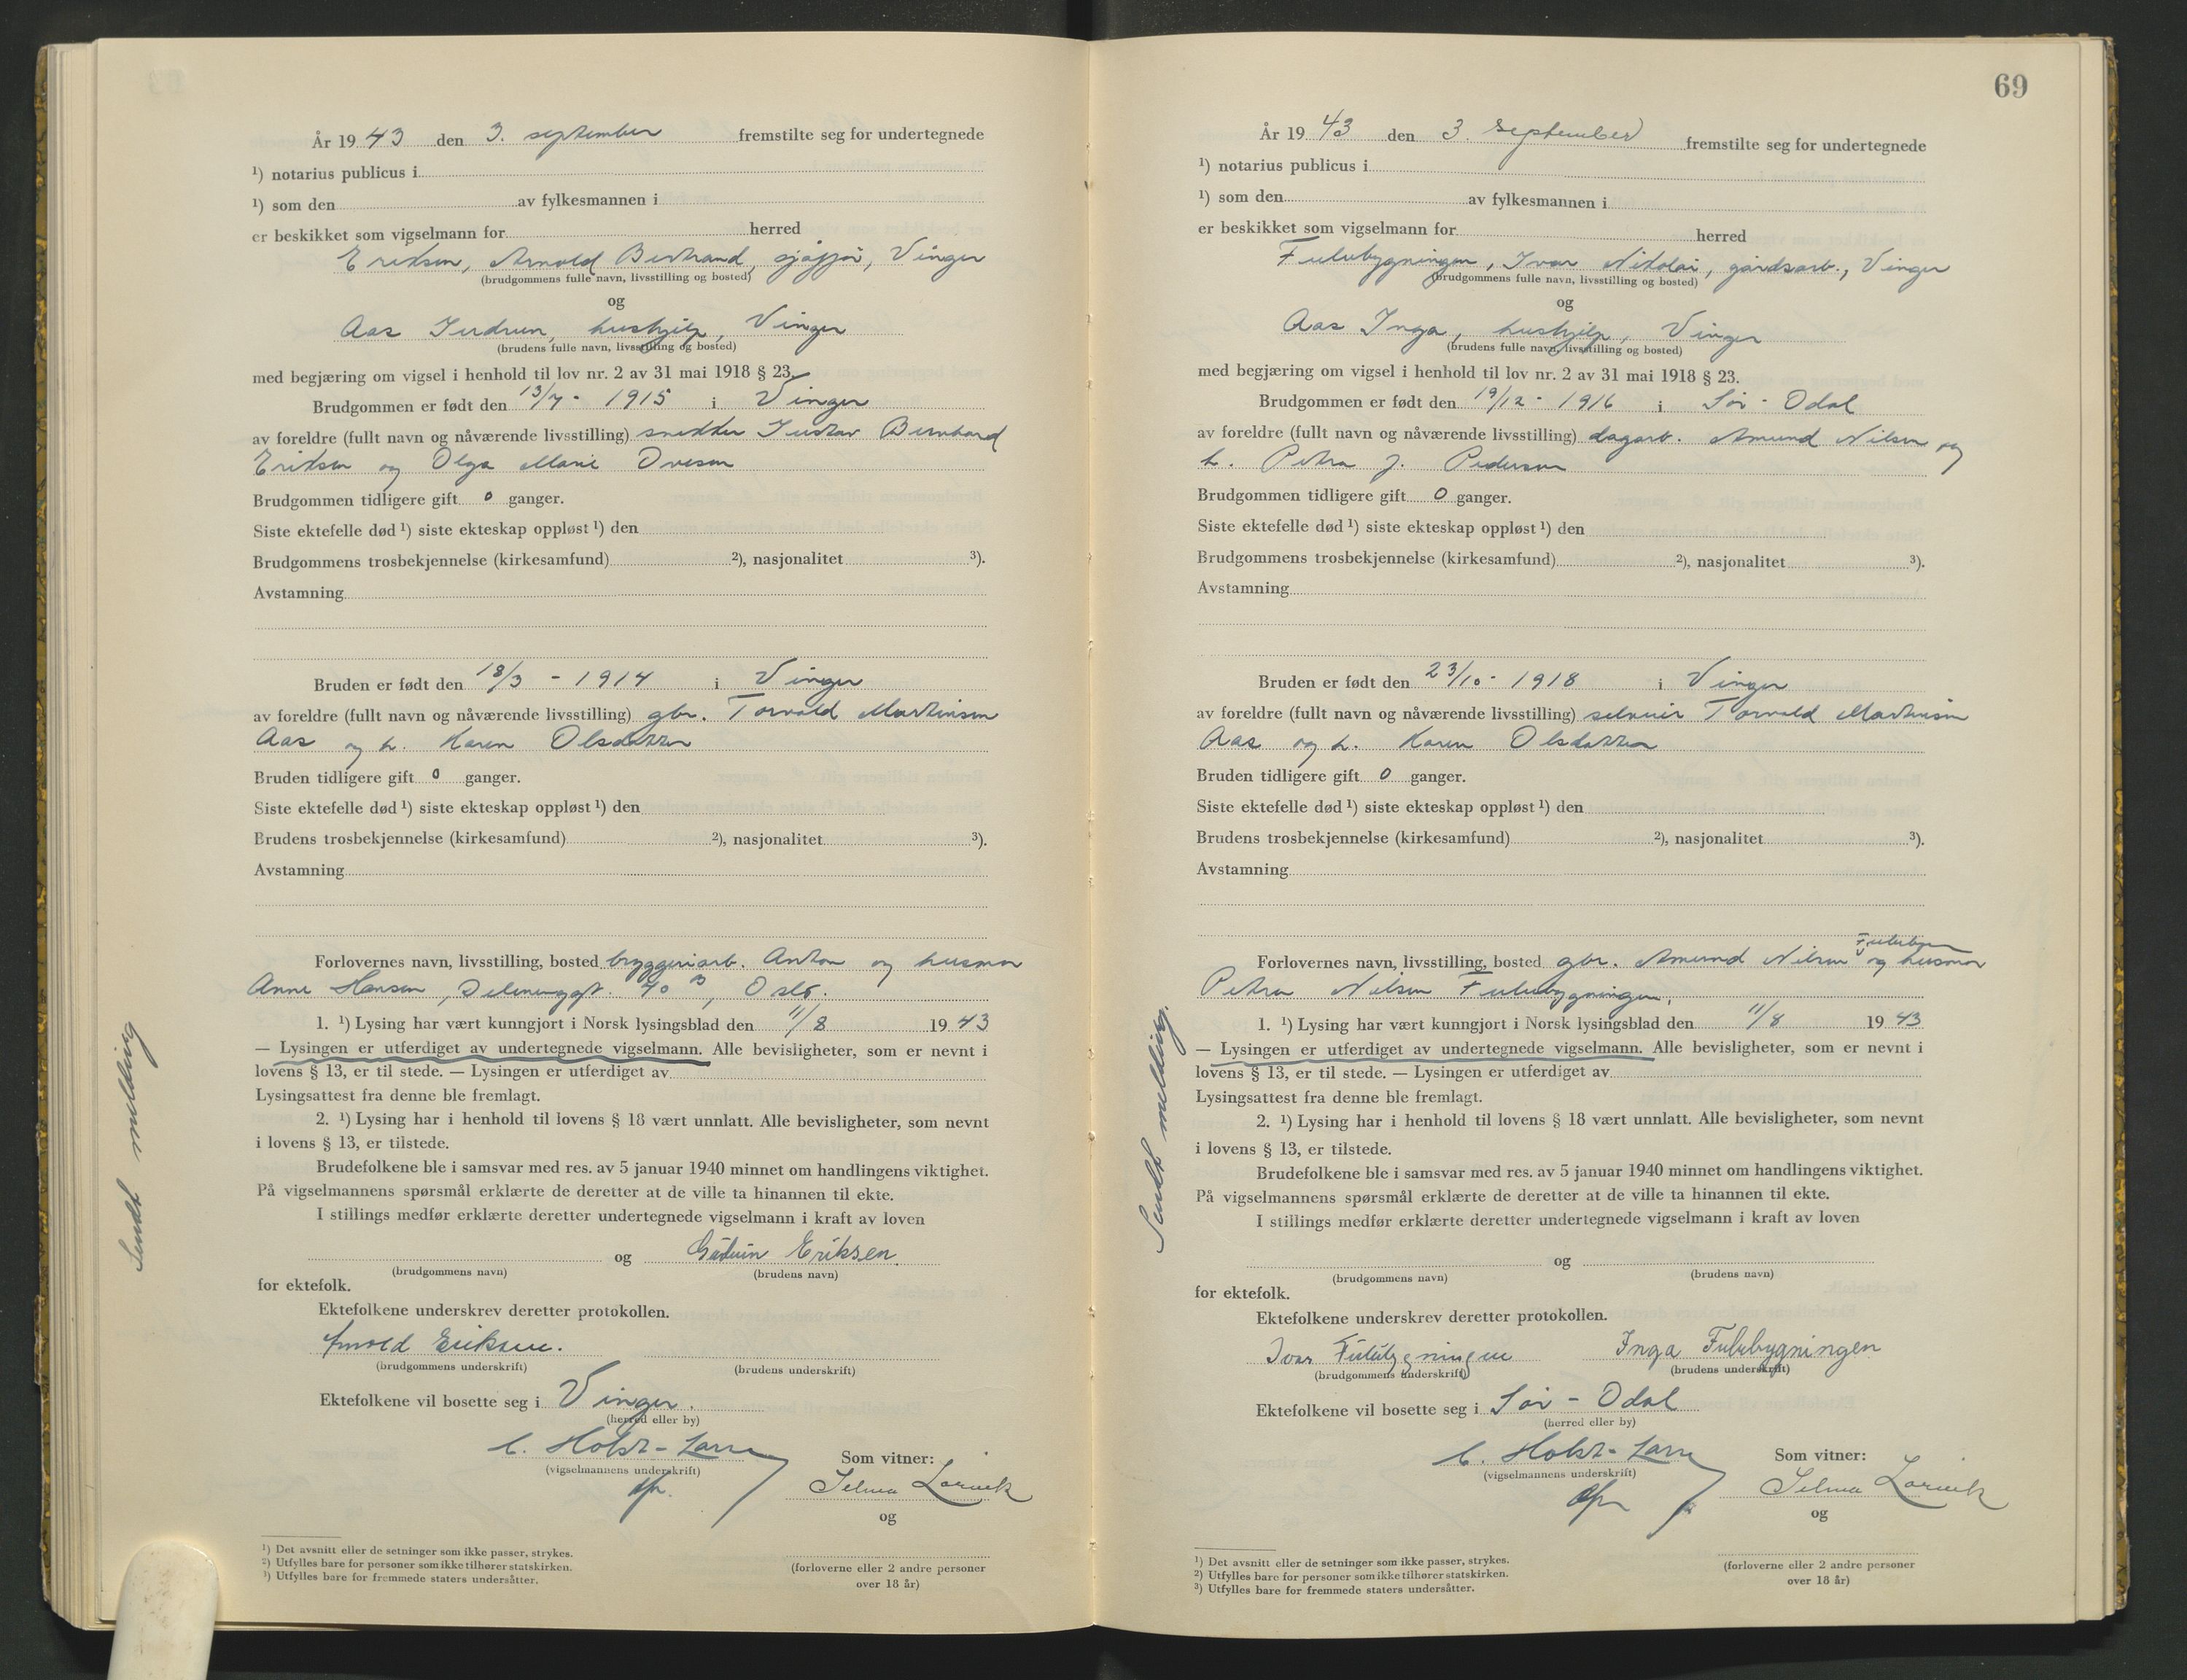 År 19 43 den 3. september fremstilte seg for undertegnede
¹) notarius publicus i
¹) som den av fylkesmannen i
er beskikket som vigselmann for herred
Eriksen, Arnold Bertrand, sjåfør, Vinger
(brudgommens fulle navn, livsstilling og bosted)
og
Aas Gudrun, hushjelp, Vinger
(brudens fulle navn, livsstilling og bosted)
med begjæring om vigsel i henhold til lov nr. 2 av 31 mai 1918 § 23.
Brudgommen er født den 13/7 - 1915 i Vinger
av foreldre (fullt navn og nåværende livsstilling) snekker Gustav Bernhard
Eriksen og Olga Marie Ovesen
Brudgommen tidligere gift 0 ganger.
Siste ektefelle død ¹) siste ekteskap oppløst ¹) den
Brudgommens trosbekjennelse (kirkesamfund) ²), nasjonalitet ³).
Avstamning
Bruden er født den 18/3 - 1914 i Vinger
av foreldre (fullt navn og nåværende livsstilling) gbr. Torvald Martinsen
Aas og h. Karen Olsdatter
Bruden tidligere gift 0 ganger.
Siste ektefelle død ¹) siste ekteskap oppløst ¹) den
Brudens trosbekjennelse (kirkesamfund) ²), nasjonalitet ³).
Avstamning
Forlovernes navn, livsstilling, bosted bryggeriarb. Anton og husmor
Anne Hansen, 40 Oslo.
1. ¹) Lysing har vært kunngjort i Norsk lysingsblad den 11/8 19 43
— Lysingen er utferdiget av undertegnede vigselmann. Alle bevisligheter, som er nevnt i
lovens § 13, er til stede. — Lysingen er utferdiget av
Lysingsattest fra denne ble fremlagt.
2. ¹) Lysing har i henhold til lovens § 18 vært unnlatt. Alle bevisligheter, som nevnt
i lovens § 13, er tilstede.
Brudefolkene ble i samsvar med res. av 5 januar 1940 minnet om handlingens viktighet.
På vigselmannens spørsmål erklærte de deretter at de ville ta hinannen til ekte.
I stillings medfør erklærte deretter undertegnede vigselmann i kraft av loven
og Gudrun Eriksen.
(brudgommens navn) (brudens navn)
for ektefolk.
Ektefolkene underskrev deretter protokollen.
Arnold Eriksen.
(brudgommens underskrift) (brudens underskrift)
Ektefolkene vil bosette seg i Vinger.
(herred eller by)
C. Holst-Larsen
(vigselmannens underskrift)
Som vitner:
Selma Larvik
og
(forloverne eller 2 andre personer
over 18 år)
¹) Det avsnitt eller de setninger som ikke passer, strykes.
²) Utfylles bare for personer som ikke tilhører statskirken.
³) Utfylles bare for fremmede staters undersåtter.
Sendt melding
69
År 19 43 den 3. september fremstilte seg for undertegnede
¹) notarius publicus i
¹) som den av fylkesmannen i
er beskikket som vigselmann for herred
Fulubygningen, Ivar Nikolai, gårdsarb., Vinger
(brudgommens fulle navn, livsstilling og bosted)
og
Aas Inga, hushjelp, Vinger
(brudens fulle navn, livsstilling og bosted)
med begjæring om vigsel i henhold til lov nr. 2 av 31 mai 1918 § 23.
Brudgommen er født den 19/12 - 1916 i Sør-Odal
av foreldre (fullt navn og nåværende livsstilling) dagarb. Amund Nilsen og
h. Petra J. Pedersen
Brudgommen tidligere gift 0 ganger.
Siste ektefelle død ¹) siste ekteskap oppløst ¹) den
Brudgommens trosbekjennelse (kirkesamfund) ²), nasjonalitet ³).
Avstamning
Bruden er født den 23/10 - 1918 i Vinger
av foreldre (fullt navn og nåværende livsstilling) selveier Torvald Martinsen
Aas og h. Karen Olsdatter
Bruden tidligere gift 0 ganger.
Siste ektefelle død ¹) siste ekteskap oppløst ¹) den
Brudens trosbekjennelse (kirkesamfund) ²), nasjonalitet ³).
Avstamning
Forlovernes navn, livsstilling, bosted gbr. Amund Nilsen og husmor
Petra Nilsen Fulubygningen.
1. ¹) Lysing har vært kunngjort i Norsk lysingsblad den 11/8 19 43
— Lysingen er utferdiget av undertegnede vigselmann. Alle bevisligheter, som er nevnt i
lovens § 13, er til stede. — Lysingen er utferdiget av
Lysingsattest fra denne ble fremlagt.
2. ¹) Lysing har i henhold til lovens § 18 vært unnlatt. Alle bevisligheter, som nevnt
i lovens § 13, er tilstede.
Brudefolkene ble i samsvar med res. av 5 januar 1940 minnet om handlingens viktighet.
På vigselmannens spørsmål erklærte de deretter at de ville ta hinannen til ekte.
I stillings medfør erklærte deretter undertegnede vigselmann i kraft av loven
og
(brudgommens navn) (brudens navn)
for ektefolk.
Ektefolkene underskrev deretter protokollen.
Ivar Fulubygningen Inga Fulubygningen
(brudgommens underskrift) (brudens underskrift)
Ektefolkene vil bosette seg i Sør-Odal
(herred eller by)
C. Holst-Larsen
(vigselmannens underskrift)
Som vitner:
Selma Larvik
og
(forloverne eller 2 andre personer
over 18 år)
¹) Det avsnitt eller de setninger som ikke passer, strykes.
²) Utfylles bare for personer som ikke tilhører statskirken.
³) Utfylles bare for fremmede staters undersåtter.
Sendt melding.